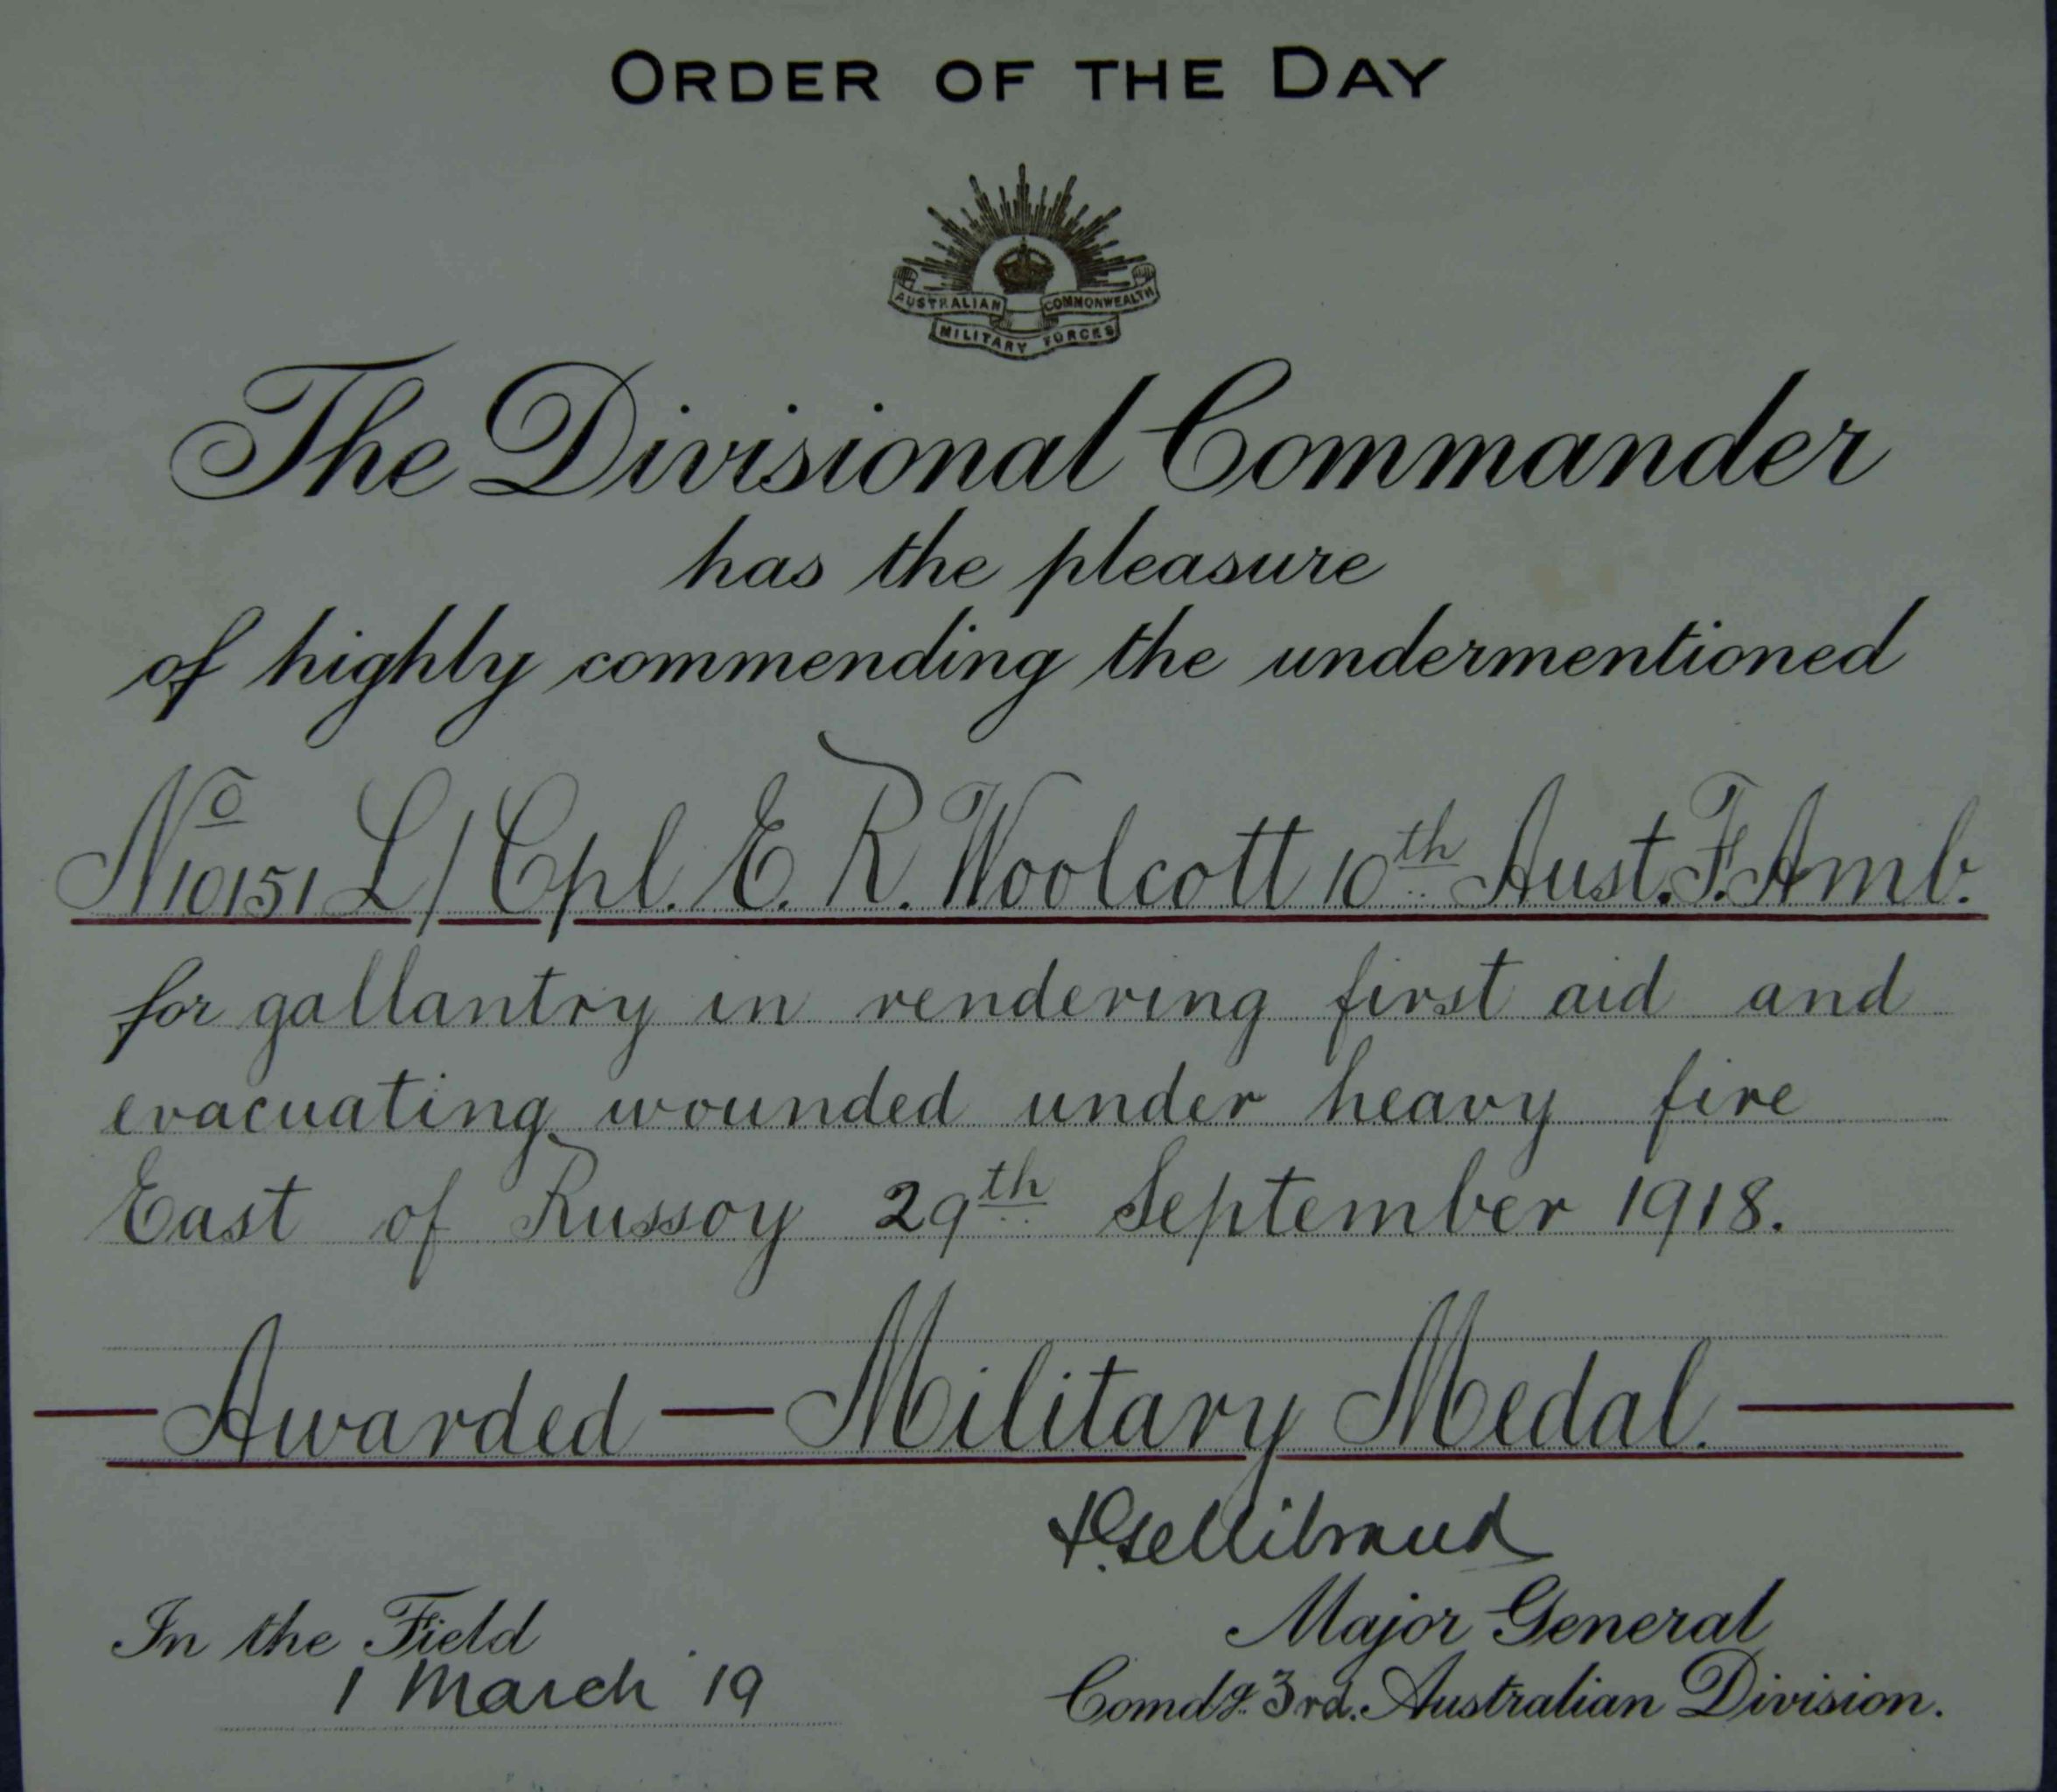 ORDER OF THE DAY
AUSTRALIAN COMMONWEALTH
MILITARY FORCES
The Divisional Commander
has the pleasure
of highly commending the undermentioned
No 10151 L/Cpl. E. R. Woolcott 10th Aust. F. Amb.
for gallantry in rendering first aid and
evacuating wounded under heavy fire
East of Russoy 29th September 1918.
— Awarded — Military Medal. —
J. Gellibrand
Major General
In the Field
1 March '19
Comdg. 3rd. Australian Division.